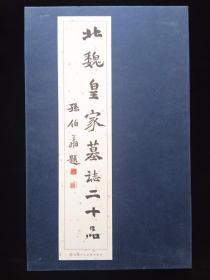 北魏皇家墓誌二十品
孫伯翔題